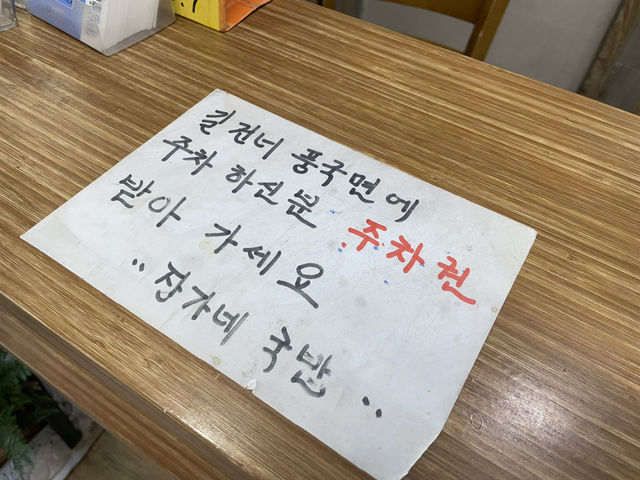 길 건너 풍국면에
주차 하신분 주차권
받아 가세요
.. 장가네 국밥 ..